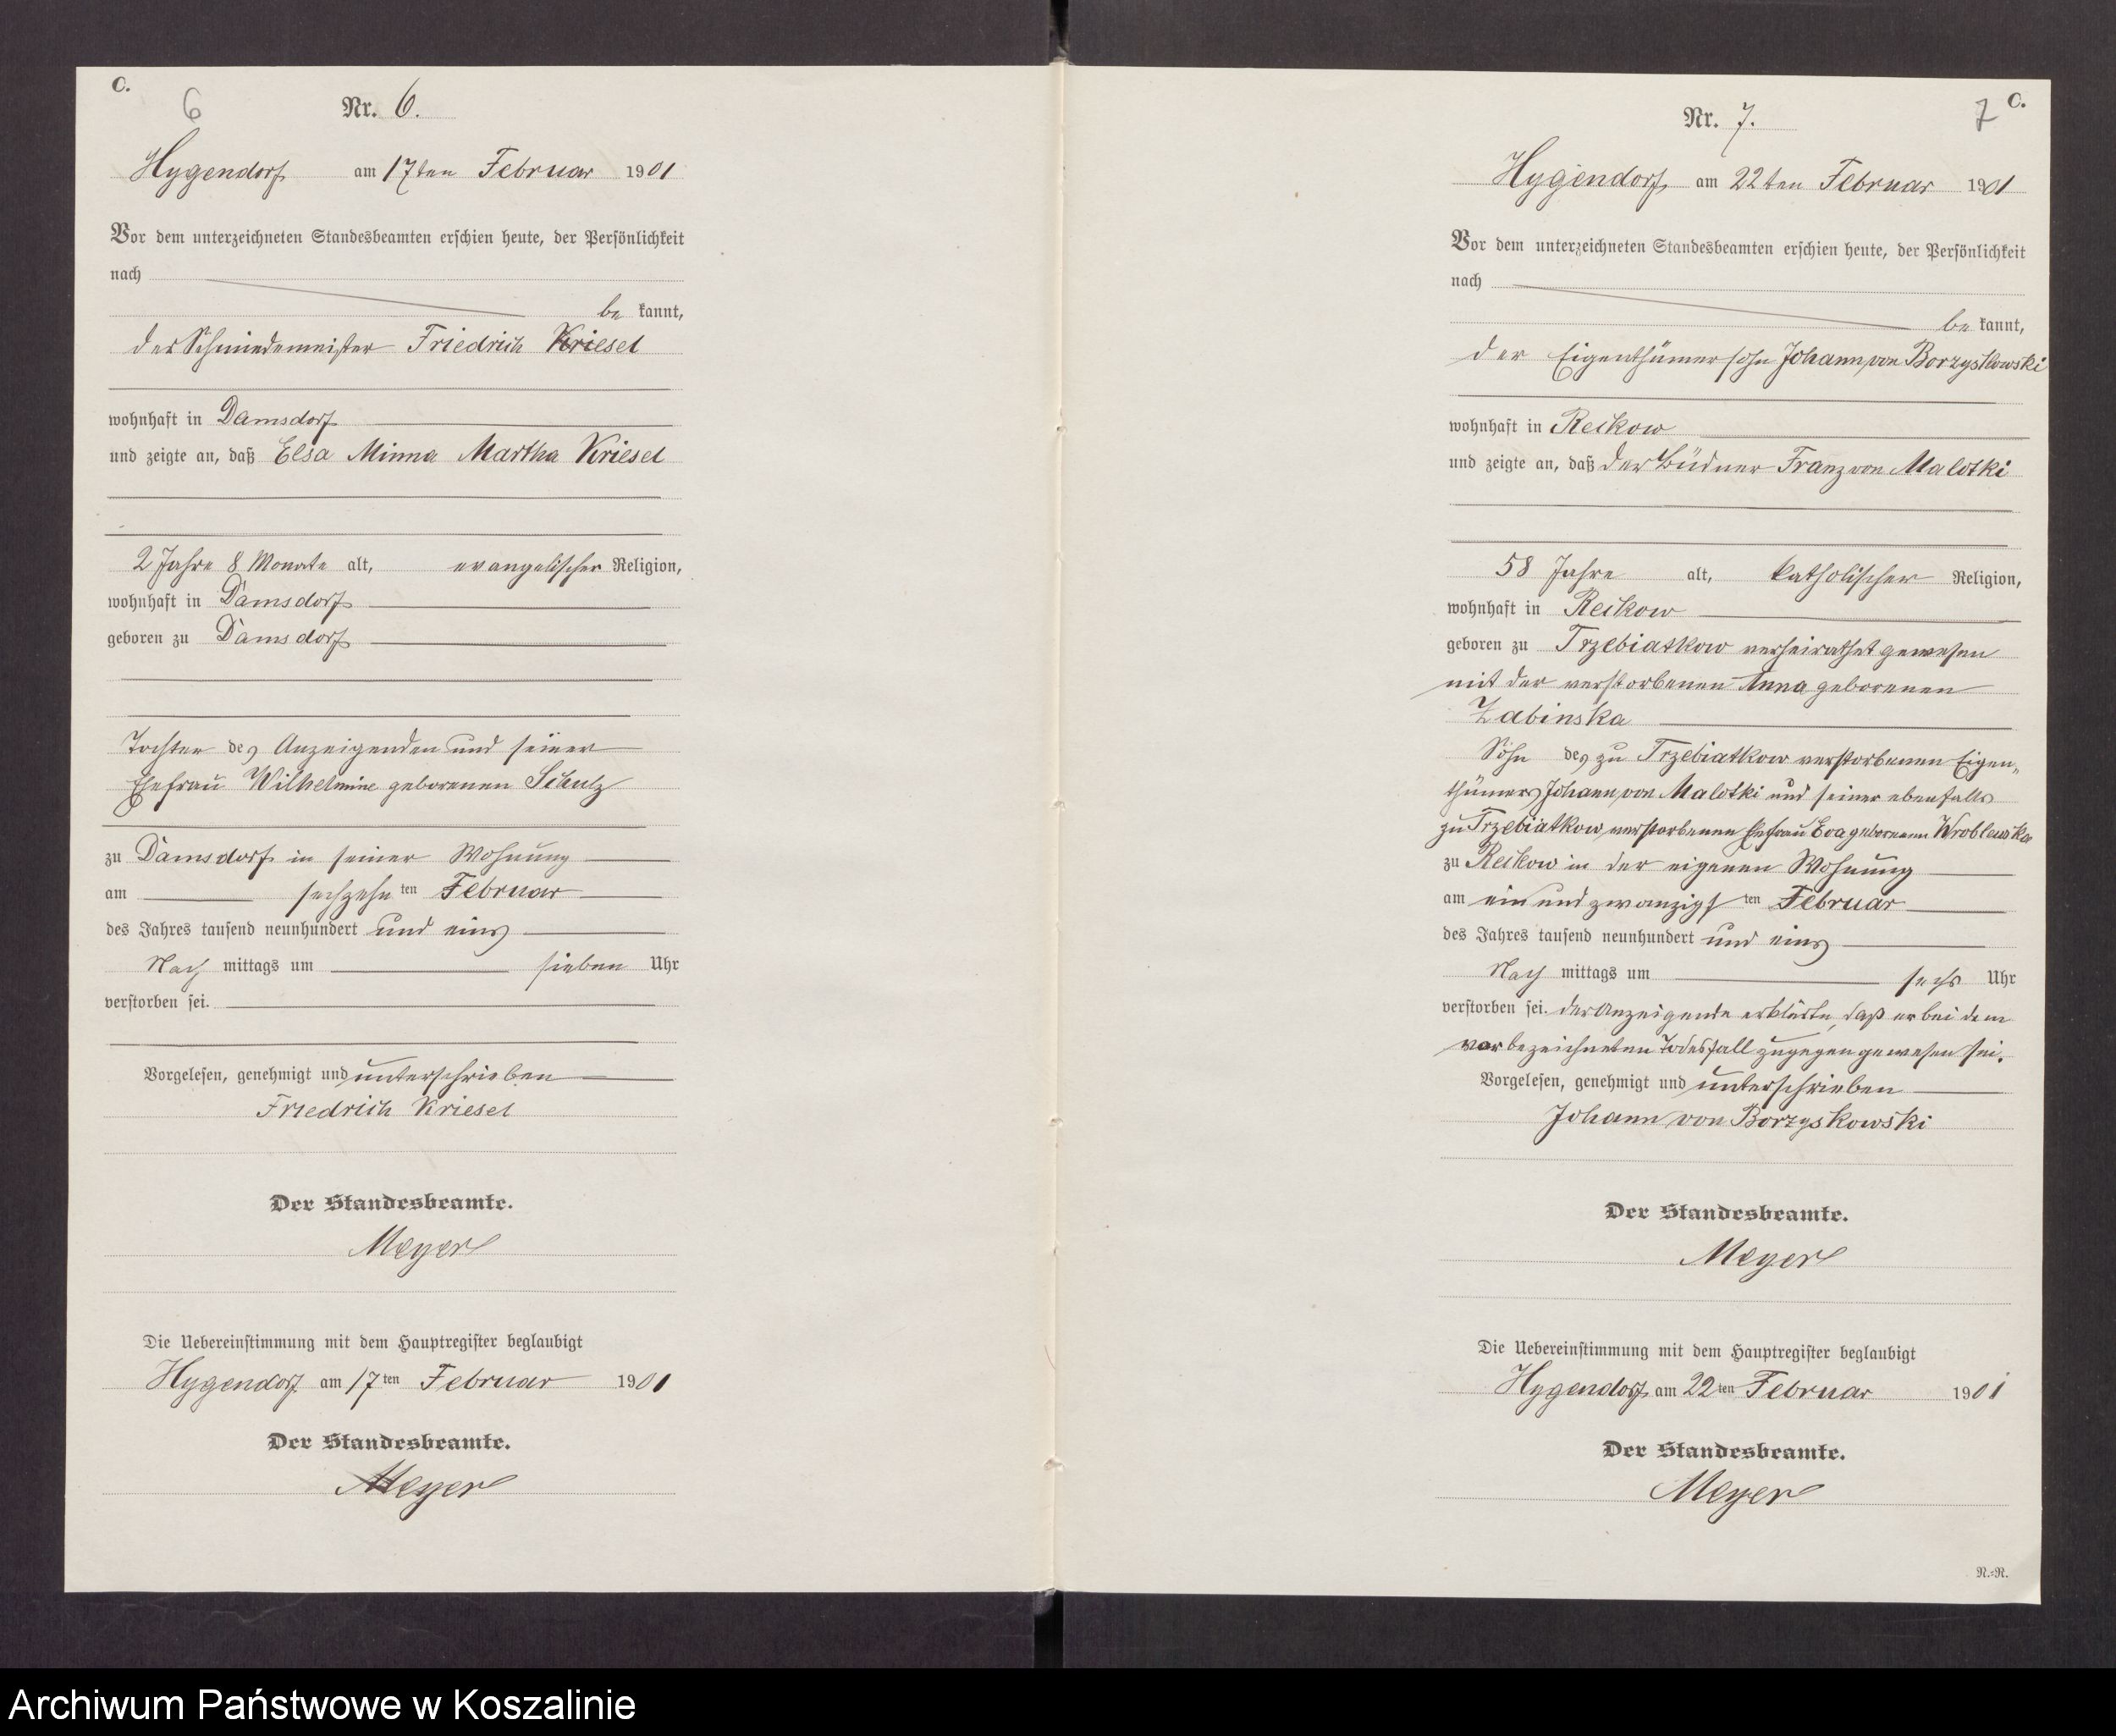 C.
6
Nr. 6.
Hygendorf am 17ten Februar 1901
Vor dem unterzeichneten Standesbeamten erschien heute, der Persönlichkeit
nach
be kannt,
der Schmiedemeister Friedrich Kriesel
wohnhaft in Damsdorf
und zeigte an, daß Elsa Minna Martha Kriesel
2 Jahre 8 Monate alt, evangelischer Religion,
wohnhaft in Damsdorf
geboren zu Damsdorf
Tochter des Anzeigenden und seiner
Ehefrau Wilhelmine geborenen Schulz
zu Damsdorf in seiner Wohnung
am sechzehn ten Februar
des Jahres tausend neunhundert und eins
Nach mittags um sieben Uhr
verstorben sei.
Vorgelesen, genehmigt und unterschrieben
Friedrich Kriesel
Der Standesbeamte.
Meyer
Die Uebereinstimmung mit dem Hauptregister beglaubigt
Hygendorf am 17ten Februar 1901
Der Standesbeamte.
Meyer
C.
7
Nr. 7.
Hygendorf am 22ten Februar 1901
Vor dem unterzeichneten Standesbeamten erschien heute, der Persönlichkeit
nach
be kannt,
der Eigenthümersohn Johann von Borzyskowski
wohnhaft in Reckow
und zeigte an, daß der Büdner Franz von Malotki
58 Jahre alt, katholischer Religion,
wohnhaft in Reckow
geboren zu Trzebiatkow verheirathet gewesen
mit der verstorbenen Anna geborenen
Zabinska
Sohn des zu Trzebiatkow verstorbenen Eigen„
thümers Johann von Malotki und seiner ebenfalls
zu Trzebiatkow verstorbenen Ehefrau Eva geborenen Wroblewska
zu Reckow in der eigenen Wohnung
am ein und zwanzigs ten Februar
des Jahres tausend neunhundert und eins
Nach mittags um sechs Uhr
verstorben sei. der Anzeigende erklärte, daß er bei dem
vorbezeichneten Todesfall zugegen gewesen sei.
Vorgelesen, genehmigt und unterschrieben
Johann von Borzyskowski
Der Standesbeamte.
Meyer
Die Uebereinstimmung mit dem Hauptregister beglaubigt
Hygendorf am 22ten Februar 1901
Der Standesbeamte.
Meyer
N.=R.
Archiwum Państwowe w Koszalinie